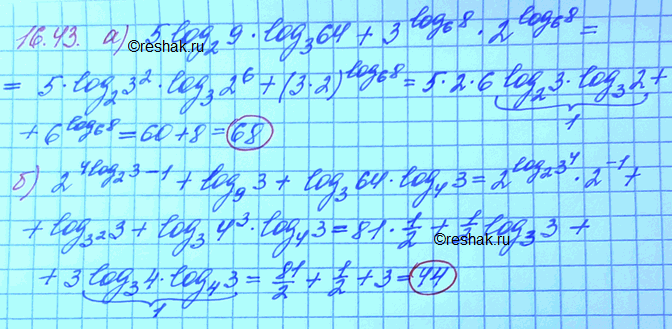 16.43. а) 5 log₂ 9 · log₃ 64 + 3^(log₆ 8) · 2^(log₆ 8) =
©reshak.ru
= 5 · log₂ 3² · log₃ 2⁶ + (3 · 2)^(log₆ 8) = 5 · 2 · 6 log₂ 3 · log₃ 2 +
1
+ 6^(log₆ 8) = 60 + 8 = 68
б) 2^(4 log₂ 3 − 1) + log₉ 3 + log₃ 64 · log₄ 3 = 2^(log₂ 3⁴) · 2⁻¹ +
+ log_(3²) 3 + log₃ 4³ · log₄ 3 = 81 · 1/2 + 1/2 log₃ 3 +
©reshak.ru
+ 3 log₃ 4 · log₄ 3 = 81/2 + 1/2 + 3 = 44
1